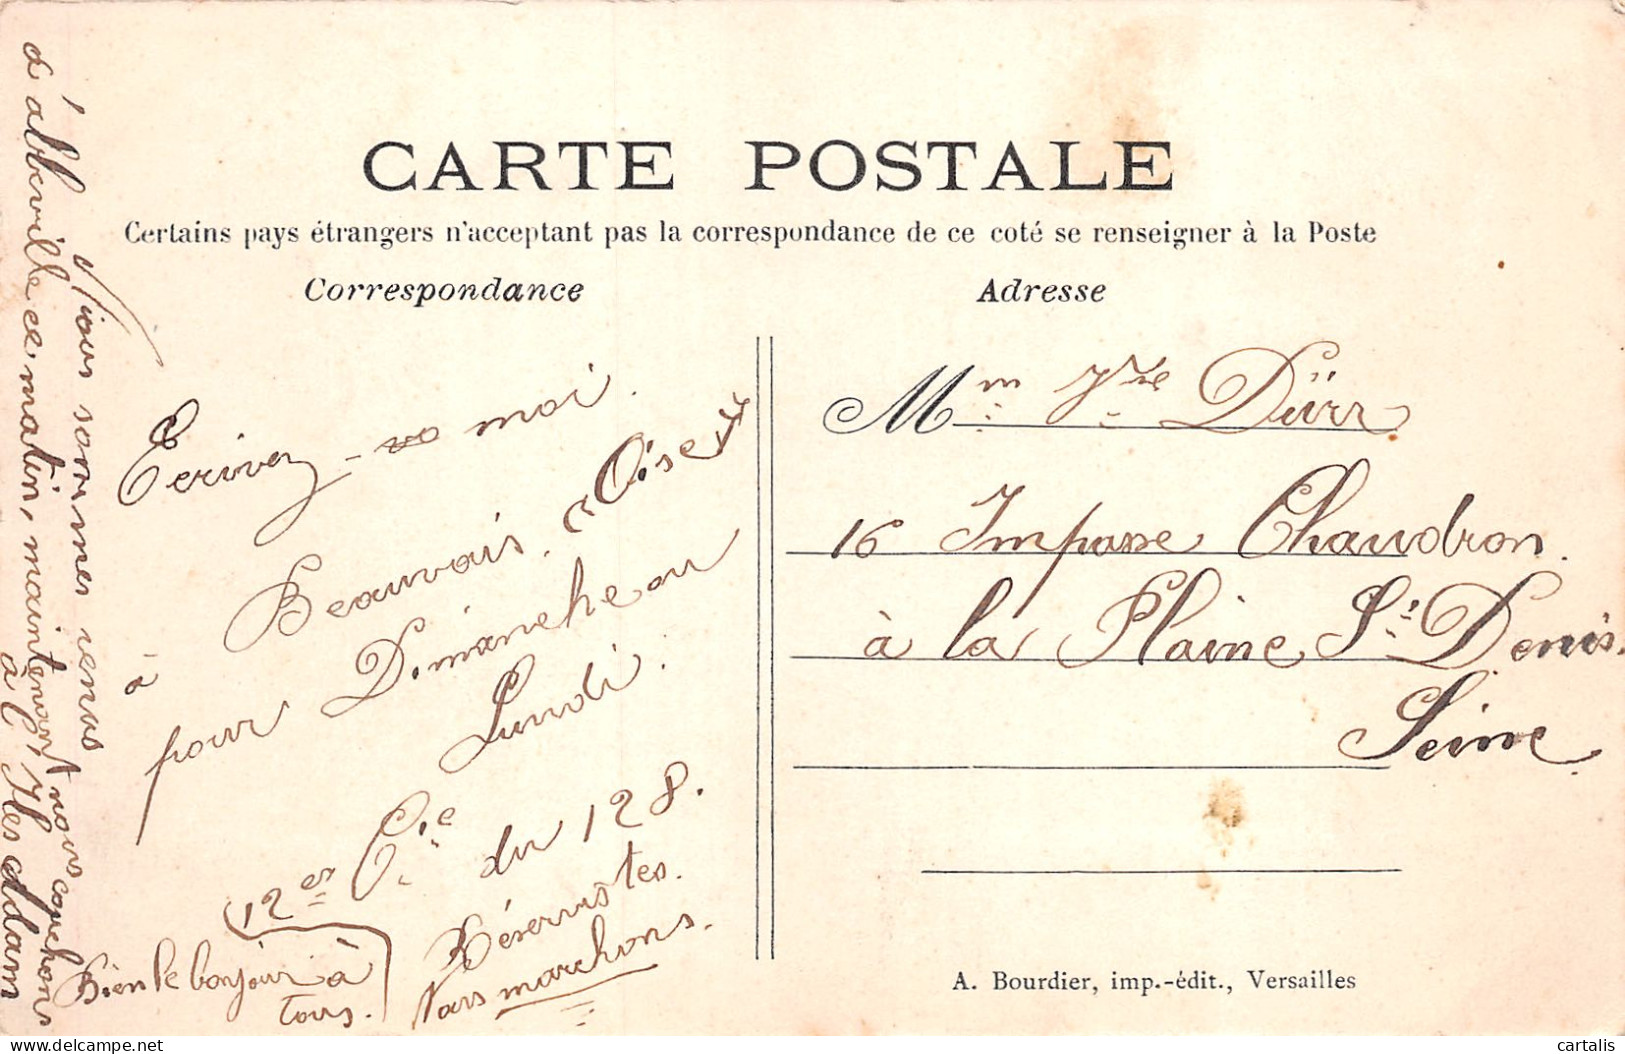 CARTE POSTALE
Certains pays étrangers n'acceptant pas la correspondance de ce coté se renseigner à la Poste
Correspondance
Adresse
Nous sommes venus
d'abbeville ce matin, maintenant nous couchons
à l'Iles Adam
Ecrivez-vo moi.
à Beauvais. "Oise"
pour Dimanche ou
Lundi.
12er Cie du 128.
Réservistes.
Nars marchons.
Bien le bonjour à
tous.
Mm Dürr
16 Impasse Chaudron.
à la Plaine St Denis.
Seine.
A. Bourdier, imp.-édit., Versailles
cartalis
delcampe.net